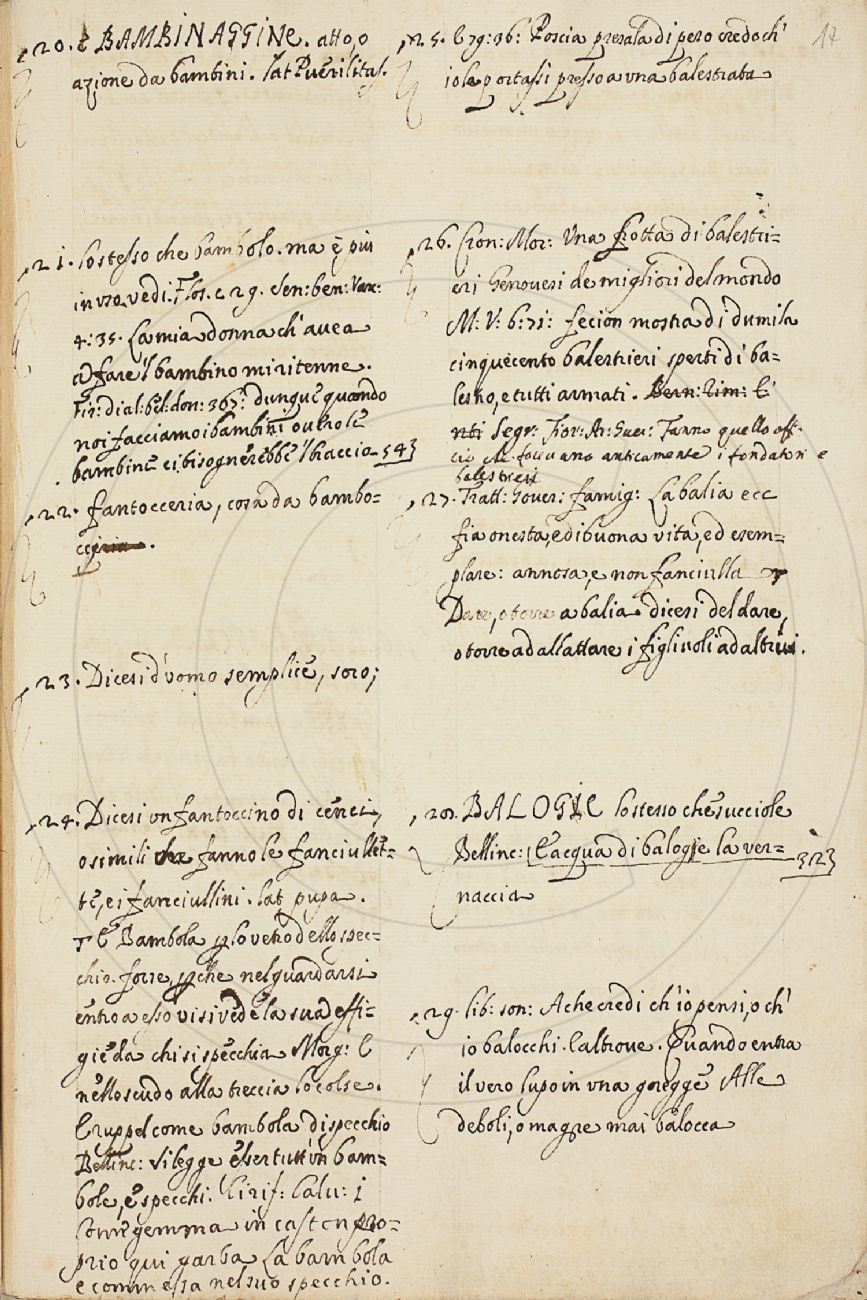 17
20. E BAMBINAGGINE. atto, o
azione da bambini. lat Puerilitas.
21. lo stesso che bambolo. ma è piu
in uso. vedi. Flos. c 29. Sen: ben: Varc:
4: 35. La mia donna ch' avea
a fare 'l bambino mi ritenne.
Fir: dial: bel: don: 367: dunque quando
noi facciamo i bambini o uno le
bambine ci bisognerebbe 'l braccio 543
22. fantocceria, cosa da bambo-
23. Dicesi d'uomo semplice, soro;
24. Dicesi un fantoccino di cenci,
o simili che fanno le fanciullet-
te, e i fanciullini. lat pupa.
E Bambola p lo vetro dello spec-
chio. forse, p che nel guardarsi
entro a esso visi vede la sua effi-
gie da chi si specchia Morg: E
nello scudo alla treccia lo colse.
E ruppel come bambola di specchio
Bellinc: si legge esser tutt' un bam-
bole, e specchi. Cirif: Calv: j
Come gemma in caston pro-
prio qui garba La bambola
e commessa nel suo specchio.
25. E 79: 36: Poscia presala di peso credo ch'
io la portassi presso a una balestrata
26. Cron: Mor: Una frotta di balestri-
eri Genovesi de migliori del mondo
M: V: 6: 71: fecion mostra di dumila
cinquecento balestrieri sperti di ba-
lestro, e tutti armati. Bern: rim: E'
nti Segr: Fior: Ar: Guer: Fanno quello offi-
cio che facevano anticamente i fondatori e
balestrieri
27. Tratt: Gover: famig: La balia ecc
sia onesta, e di buona vita, ed esem-
plare: annosa, e non fanciulla
Dare, o torre a balia dicesi del dare,
o torre ad allattare i figliuoli ad altrui.
28. BALOGIE lo stesso che succiole
Bellinc: E acqua di balogie la ver- 323
naccia
29. lib: son: A che credi ch' io pensi, o ch'
io balocchi. E altrove. Quando entra
il vero lupo in una goregge Alle
deboli, o magre mai balocca